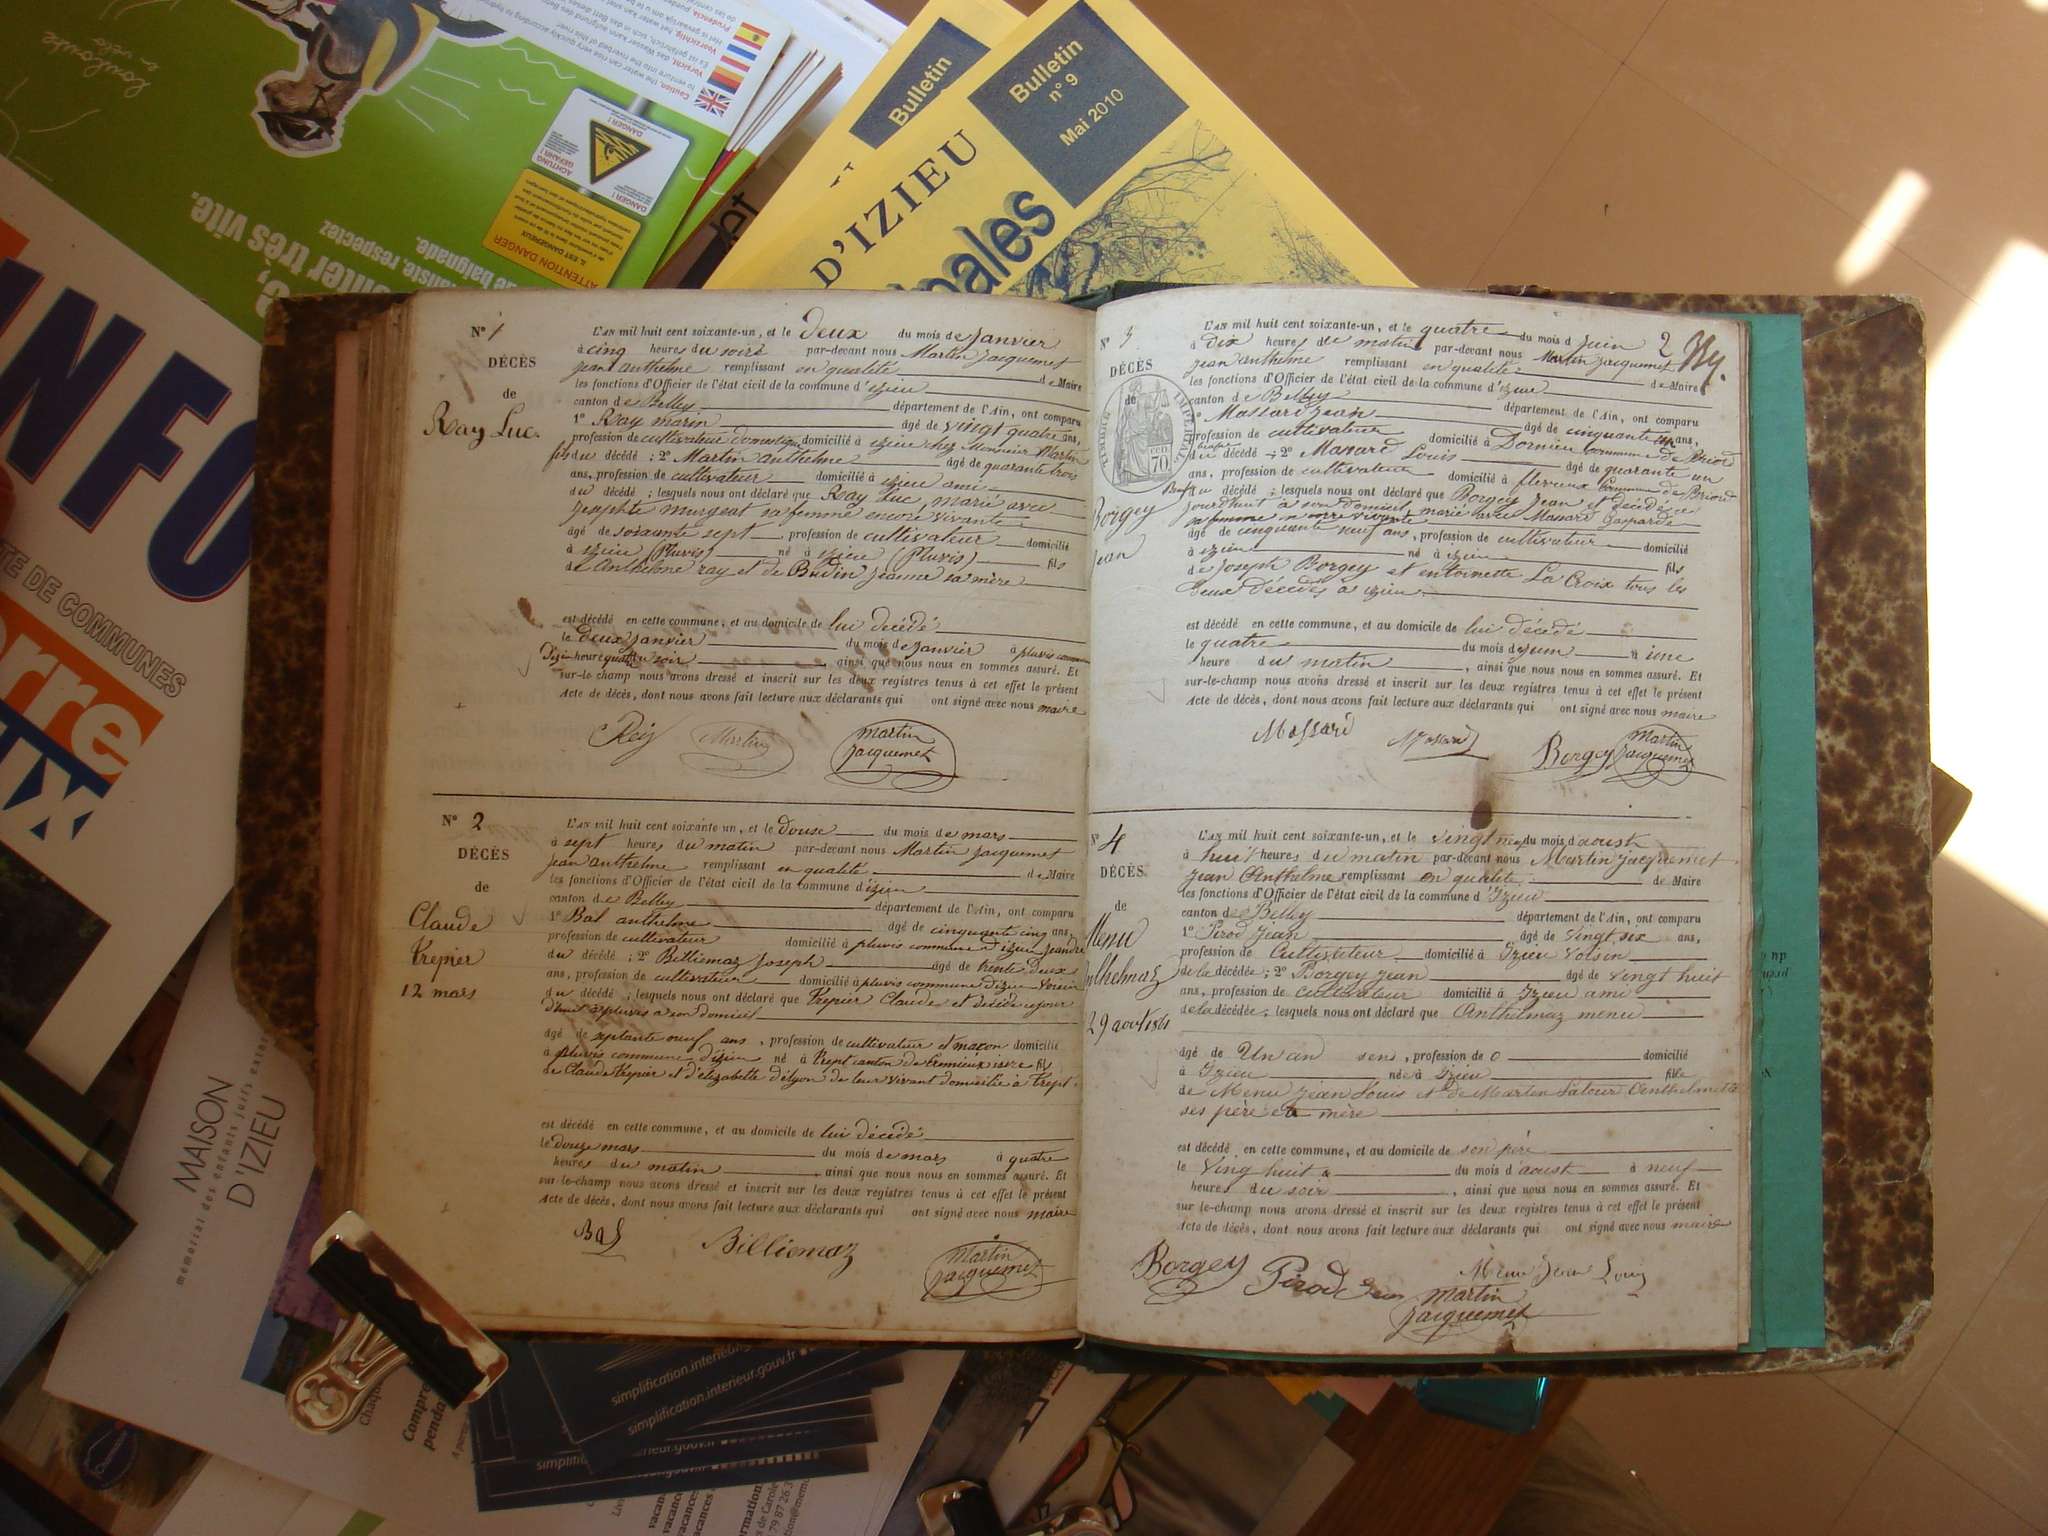 Bulletin
Bulletin
n° 9
Mai 2010
D'IZIEU
pales
Caution, the water can rise very quickly according to hydro
to venture into the riverbed of this river.
ACHTUNG GEFAHR !
DANGER !
DANGER !
ATTENTION DANGER
IL EST DANGEREUX
nter très vite.
respectez
baignade.
INFO
TE DE COMMUNES
erre
UX
MAISON
D'IZIEU
mémorial des enfants juifs exter
N° 1
DÉCÈS
de
Ray Luc.
L'AN mil huit cent soixante-un, et le deux du mois de janvier
à cinq heures du soire par-devant nous Martin jacquemet
jean anthelme remplissant en qualité de Maire
les fonctions d'Officier de l'état civil de la commune d'izieu
canton de Belley département de l'Ain, ont comparu
1° Ray marin âgé de vingt quatre ans,
profession de cultivateur domestique domicilié à izieu chez Monsieur Martin
fils du décédé ; 2° Martin anthelme âgé de quarante trois
ans, profession de cultivateur domicilié à izieu ami
du décédé ; lesquels nous ont déclaré que Ray Luc, marié avec
josephte murgeat sa femme encore vivante
âgé de soixante sept profession de cultivateur domicilié
à izieu (Pluvis) né à izieu (Pluvis) fils
de anthelme ray et de Budin jeanne sa mère
est décédé en cette commune, et au domicile de lui décédé
le deux janvier du mois de janvier à pluvis
heure quatre du soir , ainsi que nous nous en sommes assuré. Et
sur-le-champ nous avons dressé et inscrit sur les deux registres tenus à cet effet le présent
Acte de décès, dont nous avons fait lecture aux déclarants qui ont signé avec nous maire
Rey Martin martin
jacquemet
N° 2
DÉCÈS
de
Claude
Trepier
12 mars
L'AN mil huit cent soixante un, et le douse du mois de mars
à sept heures du matin par-devant nous Martin jacquemet
jean anthelme remplissant en qualité de Maire
les fonctions d'Officier de l'état civil de la commune d'izieu
canton de Belley département de l'Ain, ont comparu
1° Bal anthelme âgé de cinquante cinq ans,
profession de cultivateur domicilié à pluvis commune d'izieu
du décédé ; 2° Billiemaz Joseph âgé de trente deux
ans, profession de cultivateur domicilié à pluvis commune d'izieu voisin
du décédé ; lesquels nous ont déclaré que Trepier Claude et décédé
à pluvis a son domicil
âgé de septante neuf ans , profession de cultivateur et maçon domicilié
à pluvis commune d'izieu né à trept canton de Cremieux isère fils
de Claude trepier et d'élizabette de leur vivant domicilié à trept
est décédé en cette commune, et au domicile de lui décédé
le douze mars du mois de mars à quatre
heures du matin , ainsi que nous nous en sommes assuré. Et
sur-le-champ nous avons dressé et inscrit sur les deux registres tenus à cet effet le présent
Acte de décès, dont nous avons fait lecture aux déclarants qui ont signé avec nous maire
Bal Billiemaz martin
jacquemet
N° 3
DÉCÈS
de
TIMBRE IMPÉRIAL
70
Borgey
jean
2
L'AN mil huit cent soixante-un, et le quatre du mois d juin
à dix heure de matin par-devant nous Martin jacquemet
jean anthelme remplissant en qualité de Maire
les fonctions d'Officier de l'état civil de la commune d'izieu
canton de Belley département de l'Ain, ont comparu
1° Massard jean âgé de cinquante un ans,
profession de cultivateur domicilié à Dornieu commune de Briord
du décédé ; 2° Massard Louis âgé de quarante un
ans, profession de cultivateur domicilié à flevieux commune de Briord
du décédé ; lesquels nous ont déclaré que Borgey jean et décédé
jourdhuit à son domicil marié avec Massard Gasparde
sa femme encore vivante
âgé de cinquante neuf ans , profession de cultivateur domicilié
à izieu né à izieu fils
de joseph Borgey et entoinette La Croix tous les
deux décédés à izieu
est décédé en cette commune, et au domicile de lui décédé
le quatre du mois de juin à une
heure du matin , ainsi que nous nous en sommes assuré. Et
sur-le-champ nous avons dressé et inscrit sur les deux registres tenus à cet effet le présent
Acte de décès, dont nous avons fait lecture aux déclarants qui ont signé avec nous maire
Massard Massard Borgey martin
jacquemet
N° 4
DÉCÈS
de
Menu
nthelmaz
29 aout 1861
L'AN mil huit cent soixante-un, et le vingt neuf du mois d'aoust
à huit heures du matin par-devant nous Martin jacquemet
jean Anthelme remplissant en qualité de Maire
les fonctions d'Officier de l'état civil de la commune d'Izieu
canton de Belley département de l'Ain, ont comparu
1° Pirod jean âgé de vingt six ans,
profession de Cultivateur domicilié à Izieu voisin
de la décédée ; 2° Borgey jean âgé de vingt huit
ans, profession de cultivateur domicilié à Izieu ami
de la décédée ; lesquels nous ont déclaré que Anthelmaz menu
âgé de Un an sens , profession de o domicilié
à Izieu née à Izieu fille
de Menu jean Louis et de Martin Latour Anthelmette
ses père et mère
est décédé en cette commune, et au domicile de son père
le Ving huit du mois d'aoust à neuf
heures du soir , ainsi que nous nous en sommes assuré. Et
sur-le-champ nous avons dressé et inscrit sur les deux registres tenus à cet effet le présent
Acte de décès, dont nous avons fait lecture aux déclarants qui ont signé avec nous maire
Borgey Pirod Jean Menu Jean Louis
martin
jacquemet
simplification.interieur.gouv.fr
simplification.interieur.gouv.fr
rieur.gouv.fr